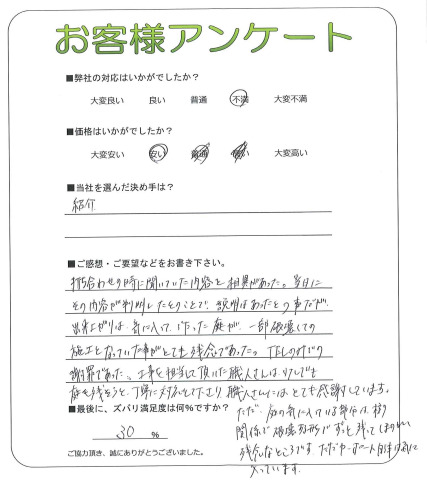 お客様アンケート
■弊社の対応はいかがでしたか？
大変良い 良い 普通 不満 大変不満
■価格はいかがでしたか？
大変安い 安い 普通 大変高い
■当社を選んだ決め手は？
紹介
■ご感想・ご要望などをお書き下さい。
打ち合わせの時に聞いていた内容と相異があった。当日に
その内容が判明したとのことで、説明はあったとの事だが、
出来上がりは、気に入って作った庭が、一部破壊しての
施工となっていた事がとても残念であった。TELのみでの
謝罪であった。工事を担当して頂いた職人さんは、
庭を残そうと、丁寧に対応して下さり職人さんにはとても感謝しています。
■最後に、ズバリ満足度は何％ですか？
30 %
ただ、庭の気に入っている部分は
関係で破壊 ずっと残ってしまう
残念なところです ただカーポート自体は気に
入っています。
ご協力頂き、誠にありがとうございました。